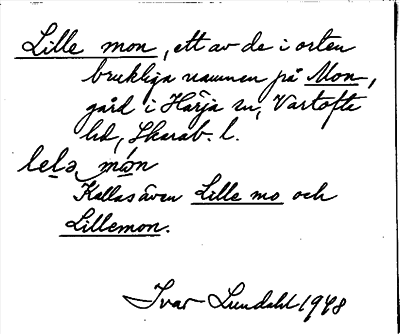 Lille mon, ett av de i orten
brukliga namnen på Mon,
gård i Härja sn, Vartofta
hd, Skarab. l.
lelə món
Kallas även Lille mo och
Lillemon.
Ivar Lundahl 1948